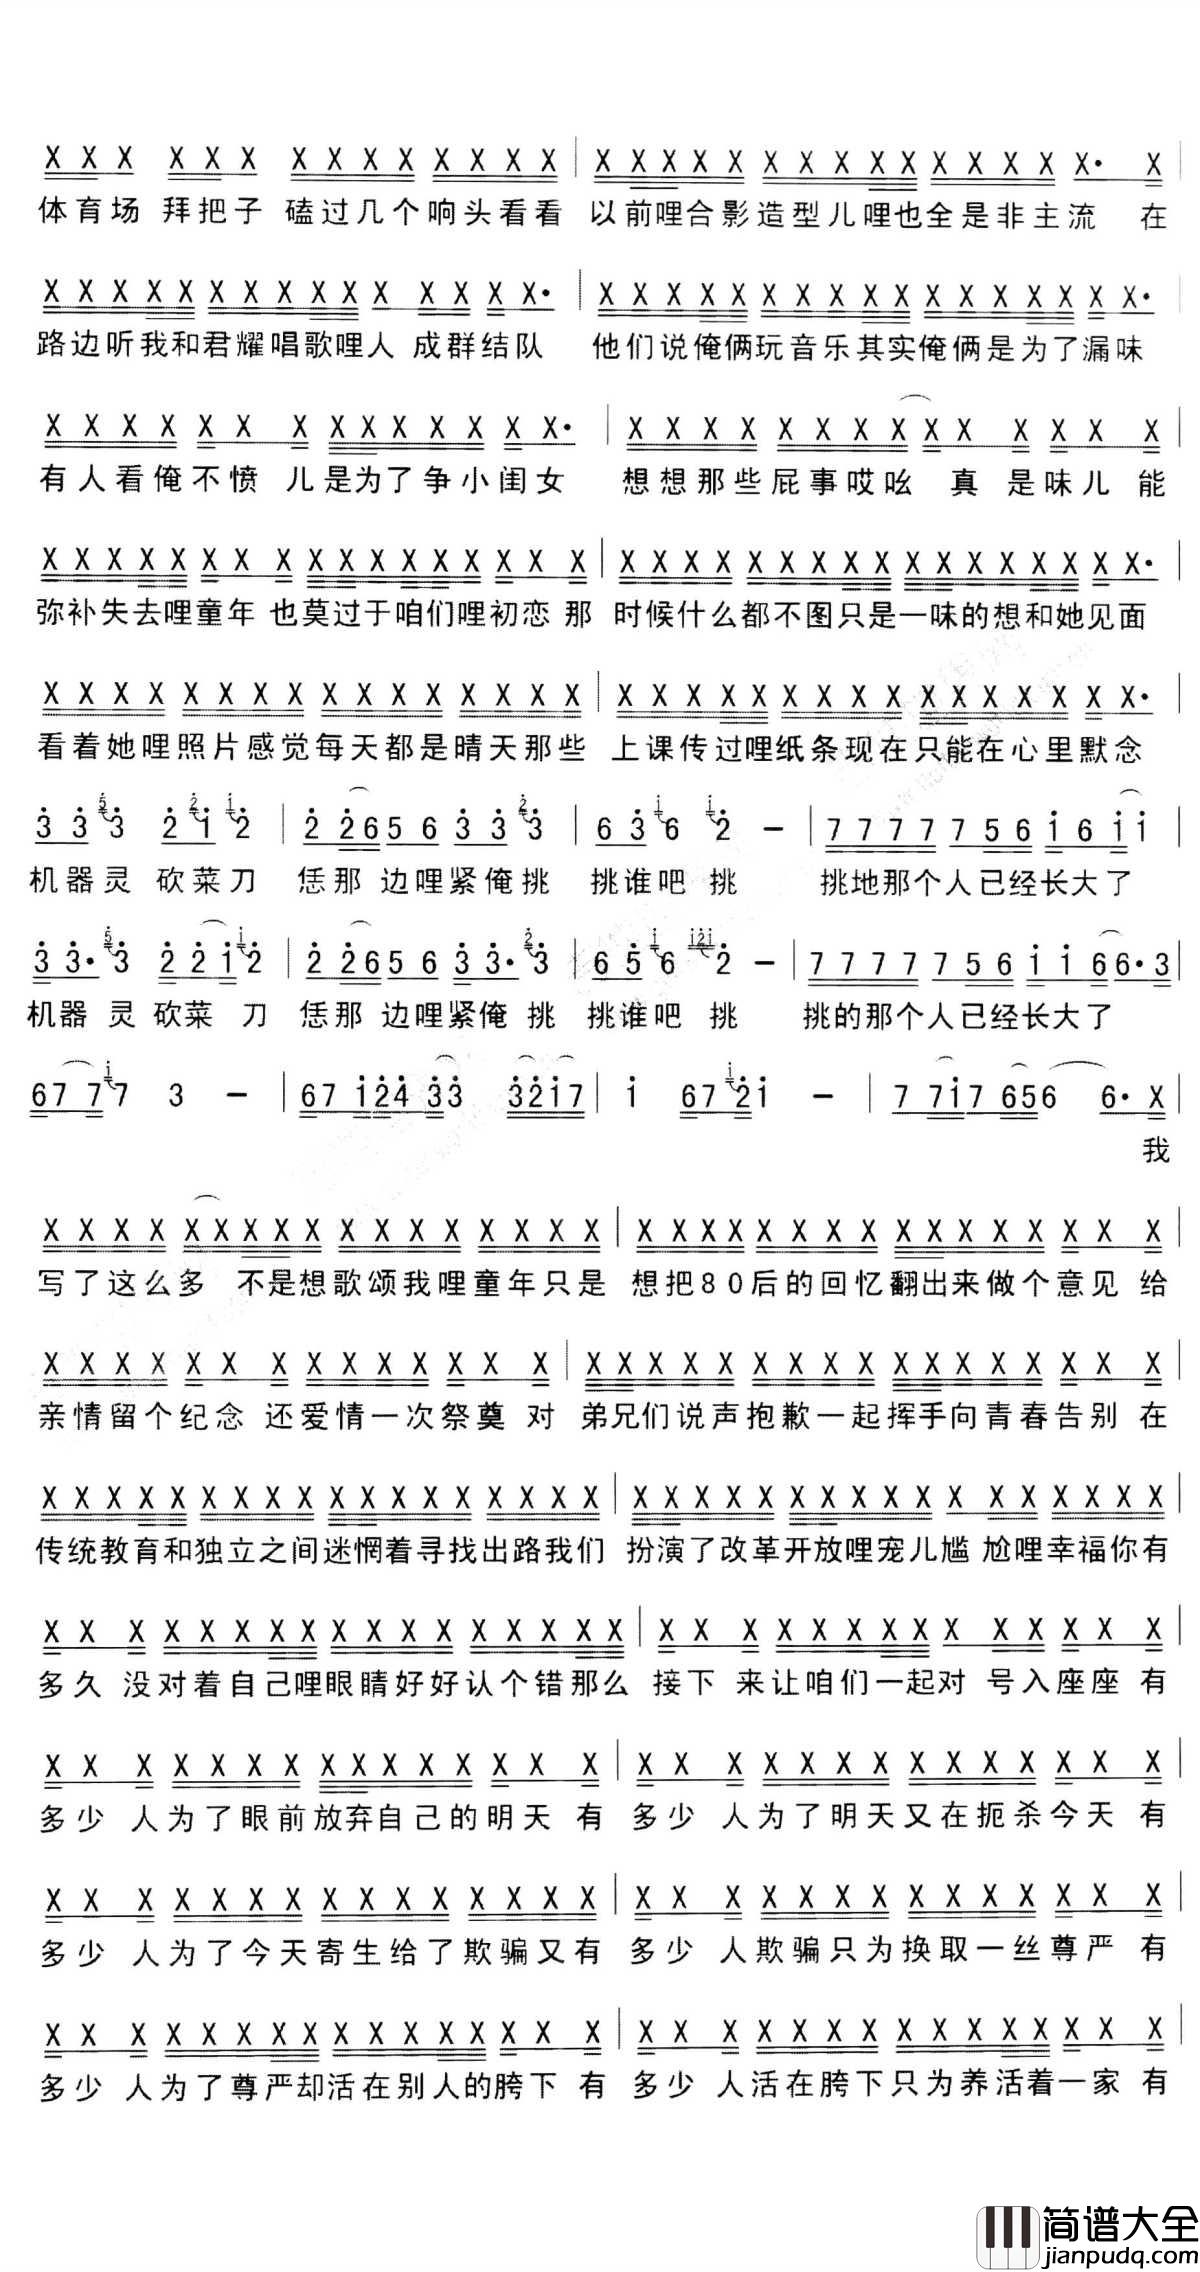 X X X X X X X X X X X X X X | X X X X X X X X X X X X X X· X |
体育场 拜把子 磕过几个响头看看 以前哩合影造型儿哩也全是非主流 在
X X X X X X X X X X X X X X X X· | X X X X X X X X X X X X X X X X X· |
路边听我和君耀唱歌哩人 成群结队 他们说俺俩玩音乐其实俺俩是为了漏味
X X X X X X X X X X X X X X· | X X X X X X X X X X X X X X X |
有人看俺不愤 儿是为了争小闺女 想想那些屁事哎吆 真 是味儿能
X X X X X X X X X X X X X X X X X | X X X X X X X X X X X X X X X X X· |
弥补失去哩童年 也莫过于咱们哩初恋 那 时候什么都不图只是一味的想和她见面
X X X X X X X X X X X X X X X X | X X X X X X X X X X X X X X X X X· |
看着她哩照片感觉每天都是晴天那些 上课传过哩纸条现在只能在心里默念
3 3 5 3 2 2 1 1 2 | 2 2 6 5 6 3 3 2 3 | 6 3 1 6 1 2 － | 7 7 7 7 7 5 6 1 6 1 1 |
机器灵 砍菜刀 恁那 边哩紧俺挑 挑谁吧 挑 挑地那个人已经长大了
3 3· 5 3 2 2 1 1 2 | 2 2 6 5 6 3 3· 2 3 | 6 5 1 6 1 2 1 2 － | 7 7 7 7 7 5 6 1 1 6 6· 3 |
机器 灵 砍菜 刀 恁那 边哩紧俺 挑 挑谁吧 挑 挑的那个人已经长大了
6 7 7 1 7 3 － | 6 7 1 2 4 3 3 3 2 1 7 | 1 6 7 1 2 1 － | 7 7 1 7 6 5 6 6· X |
我
X X X X X X X X X X X X X X X X X | X X X X X X X X X X X X X X X |
写了这么多 不是想歌颂我哩童年只是 想把80后的回忆翻出来做个意见给
X X X X X X X X X X X X X X | X X X X X X X X X X X X X X X X |
亲情留个纪念 还爱情一次祭奠 对 弟兄们说声抱歉一起挥手向青春告别 在
X X X X X X X X X X X X X X X X X X | X X X X X X X X X X X X X X X X |
传统教育和独立之间迷惘着寻找出路我们 扮演了改革开放哩宠儿尴 尬哩幸福你有
X X X X X X X X X X X X X X X X X | X X X X X X X X X X X X X X |
多久 没对着自己哩眼睛好好认个错那么 接下 来让咱们一起对 号入座座 有
X X X X X X X X X X X X X X X | X X X X X X X X X X X X X X |
多少 人为了眼前放弃自己的明天 有 多少 人为了明天又在扼杀今天 有
X X X X X X X X X X X X X X X | X X X X X X X X X X X X X X |
多少 人为了今天寄生给了欺骗又有 多少 人欺骗只为换取一丝尊严 有
X X X X X X X X X X X X X X X X | X X X X X X X X X X X X X X X |
多少 人为了尊严却活在别人的胯下 有 多少 人活在胯下只为养活着一家 有
简谱大全
jianpudq.com